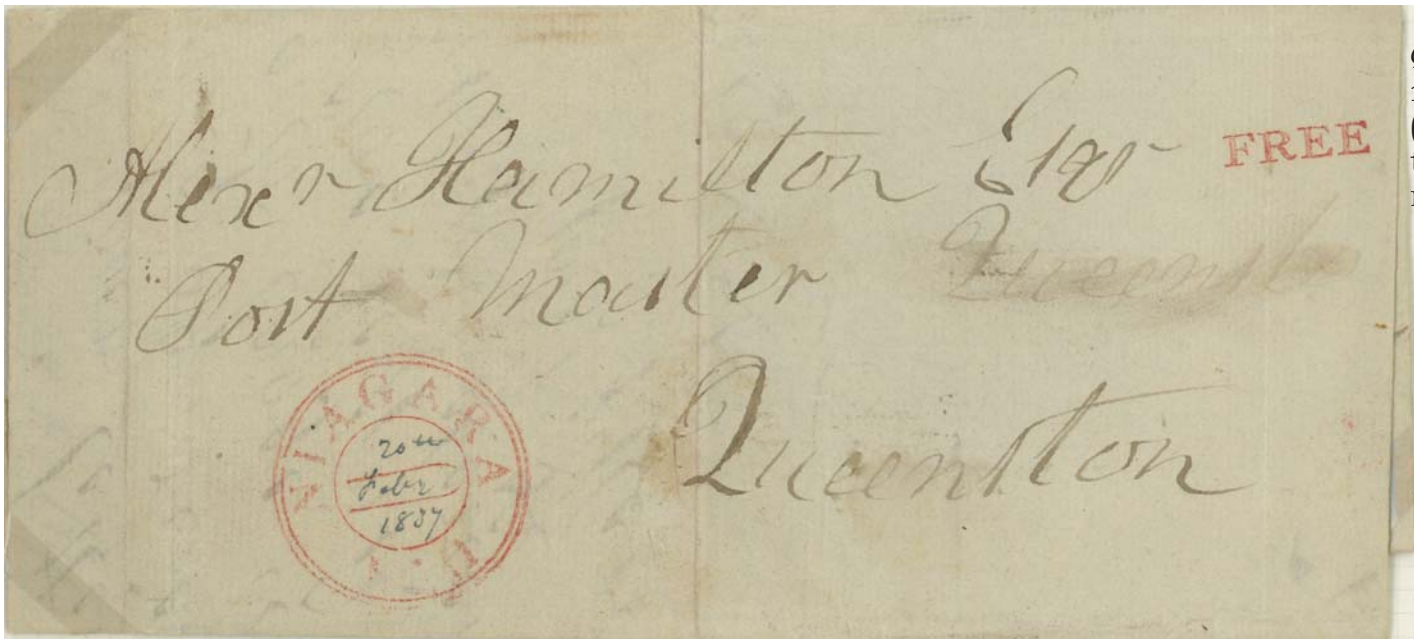 Alexr Hamilton Esqr
FREE
Post Master
Queenston
NIAGARA U.C
20th
Febr
1837